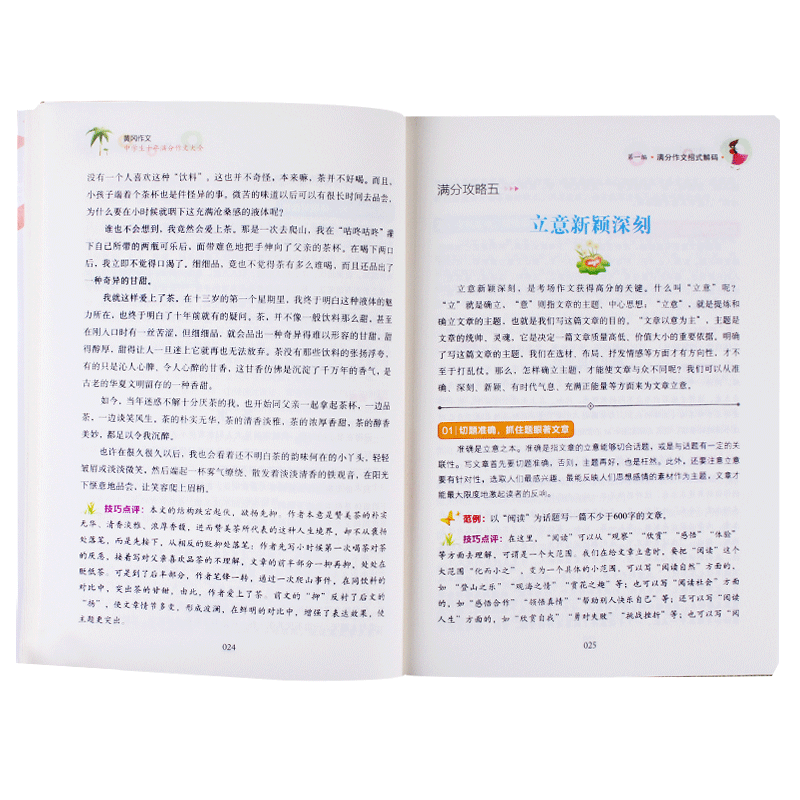 黄冈作文
中学生小升满分作文大全
没有一个人喜欢这种“饮料”。这也并不奇怪，本来嘛，茶并不好喝。而且，
小孩子端着个茶杯也是件怪异的事。微苦的味道以后可以有很长时间去品尝，
为什么要在小时候就咽下这充满沧桑感的液体呢？
谁也不会想到，我竟然会爱上茶。那是一次去爬山，我在“咕咚咕咚”灌
下自己所带的两瓶可乐后，面带难色地把手伸向了父亲的茶杯。在喝下两口
后，我立即不觉得口渴了。细细品，竟也不觉得茶有多么难喝，而且还品出了
一种奇异的甘甜。
我就这样爱上了茶。在十三岁的第一个星期里，我终于明白这种液体的魅
力所在，也终于明白了十年前就有的疑问。茶，并不像一般饮料那么甜，甚至
在刚入口时有一丝苦涩，但细细品，就会品出一种奇异得难以形容的甘甜，甜
得醇厚，甜得让人一旦迷上它就再也无法放弃。茶没有那些饮料的张扬浮夸，
有的只是沁人心脾、令人心醉的甘香，这甘香仿佛是沉淀了千万年的香气，是
古老的华夏文明留存的一种香甜。
如今，当年迷惑不解十分厌茶的我，也开始同父亲一起拿起茶杯，一边品
茶，一边谈笑风生，茶的朴实无华，茶的清香淡雅，茶的浓厚香甜，茶的醇香
美妙，都足以令我沉醉。
也许在很久很久以后，我也会看着还不明白茶的韵味何在的小丫头，轻轻
皱眉或淡淡微笑，然后端起一杯雾气缭绕、散发着淡淡清香的铁观音，在阳光
下惬意地品尝，让笑容爬上眉梢。
技巧点评：本文的结构跌宕起伏，欲扬先抑。作者本意是赞美茶的朴实
无华、清香淡雅、浓厚香馥，进而赞美茶所代表的这种人生境界，却不从褒扬
处落笔，而是先按下，从相反的贬抑处落笔：作者先写小时候第一次喝茶对茶
的反感，接着写对父亲喜欢品茶的不理解，文章的前半部分一抑再抑，处处在
贬低茶。可是到了后半部分，作者笔锋一转，通过一次爬山事件，在同饮料的
对比中，突出茶的甘甜，由此，作者爱上了茶。前文的“抑”反衬了后文的
“扬”，使文章情节多变，形成波澜，在鲜明的对比中，增强了表达效果，使
主题更突出。
024
第一编·满分作文招式解码·
满分攻略五
立意新颖深刻
立意新颖深刻，是考场作文获得高分的关键。什么叫“立意”呢？
“立”就是确立，“意”则指文章的主题、中心思想；“立意”，就是提炼和
确立文章的主题，也就是我们写这篇文章的目的。“文章以意为主”，主题是
文章的统帅、灵魂，它是决定一篇文章质量高低、价值大小的重要依据，明确
了写这篇文章的主题，我们在选材、布局、抒发情感等方面才有方向性，才不
至于打乱仗。那么，怎样确立主题，才能使文章与众不同呢？我们可以从准
确、深刻、新颖、有时代气息、充满正能量等方面来为文章立意。
01 切题准确，抓住题眼著文章
准确是立意之本。准确是指文章的立意能够切合话题，或是与话题有一定的关
联性。写文章首先要切题准确，否则，主题再好，也是枉然。此外，还要注意立意
要有针对性，选取人们最感兴趣、最能反映人们思想感情的素材作为主题，文章才
能最大限度地激起读者的反响。
范例：以“阅读”为话题写一篇不少于600字的文章。
技巧点评：在这里，“阅读”可以从“观察”“欣赏”“感悟”“体验”
等方面去理解，可谓是一个大范围。我们在给文章立意时，要把“阅读”这个
大范围“化而小之”，变为一个具体的小范围，可以写“阅读自然”方面的，
如“登山之乐”“观海之情”“赏花之趣”等；也可以写“阅读社会”方面
的，如“感悟合作”“领悟真情”“帮助别人快乐自己”等；还可以写“阅读
人生”方面的，如“欣赏自我”“勇对失败”“挑战挫折”等；也可以写“阅
025